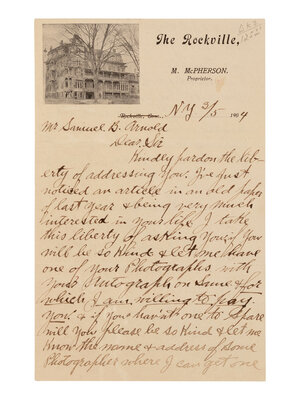 The Rockville,
M. McPHERSON,
Proprietor.
Rockville, Conn.,
NY 3/5 1904
Mr Samuel B. Arnold
Dear Sir
Kindly pardon the lib-
erty of addressing you. I've just
noticed an article in an old paper
of last year & being very much
interested in your life I take
this liberty of asking you, if you
will be so kind & let me have
one of your Photographs with
your Autograph on same & for
which I am willing to pay
you & if you havn't one to spare
will you please be so kind & let me
know the name & address of some
Photographer where I can get one